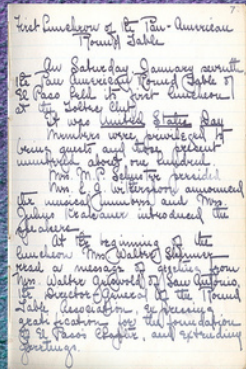 7
First Luncheon of the Pan-American
Round Table
On Saturday January seventh
the Pan American Round Table of
El Paso held its first luncheon
at the Toltec Club.
It was United States Day
Members were privileged to
bring guests and those present
numbered about one hundred.
Mrs. M. P. Schuster presided
Mrs. E. A. Witherspoon announced
the musical numbers and Mrs.
Julius Krakauer introduced the
speakers.
At the beginning of the
luncheon Mrs. Walter Skinner
read a message of greeting from
Mrs. Walter Griswold of San Antonio,
the Director General of the Round
Table, Association, expressing
gratification for the foundation
of El Paso's Chapter, and extending
greetings.